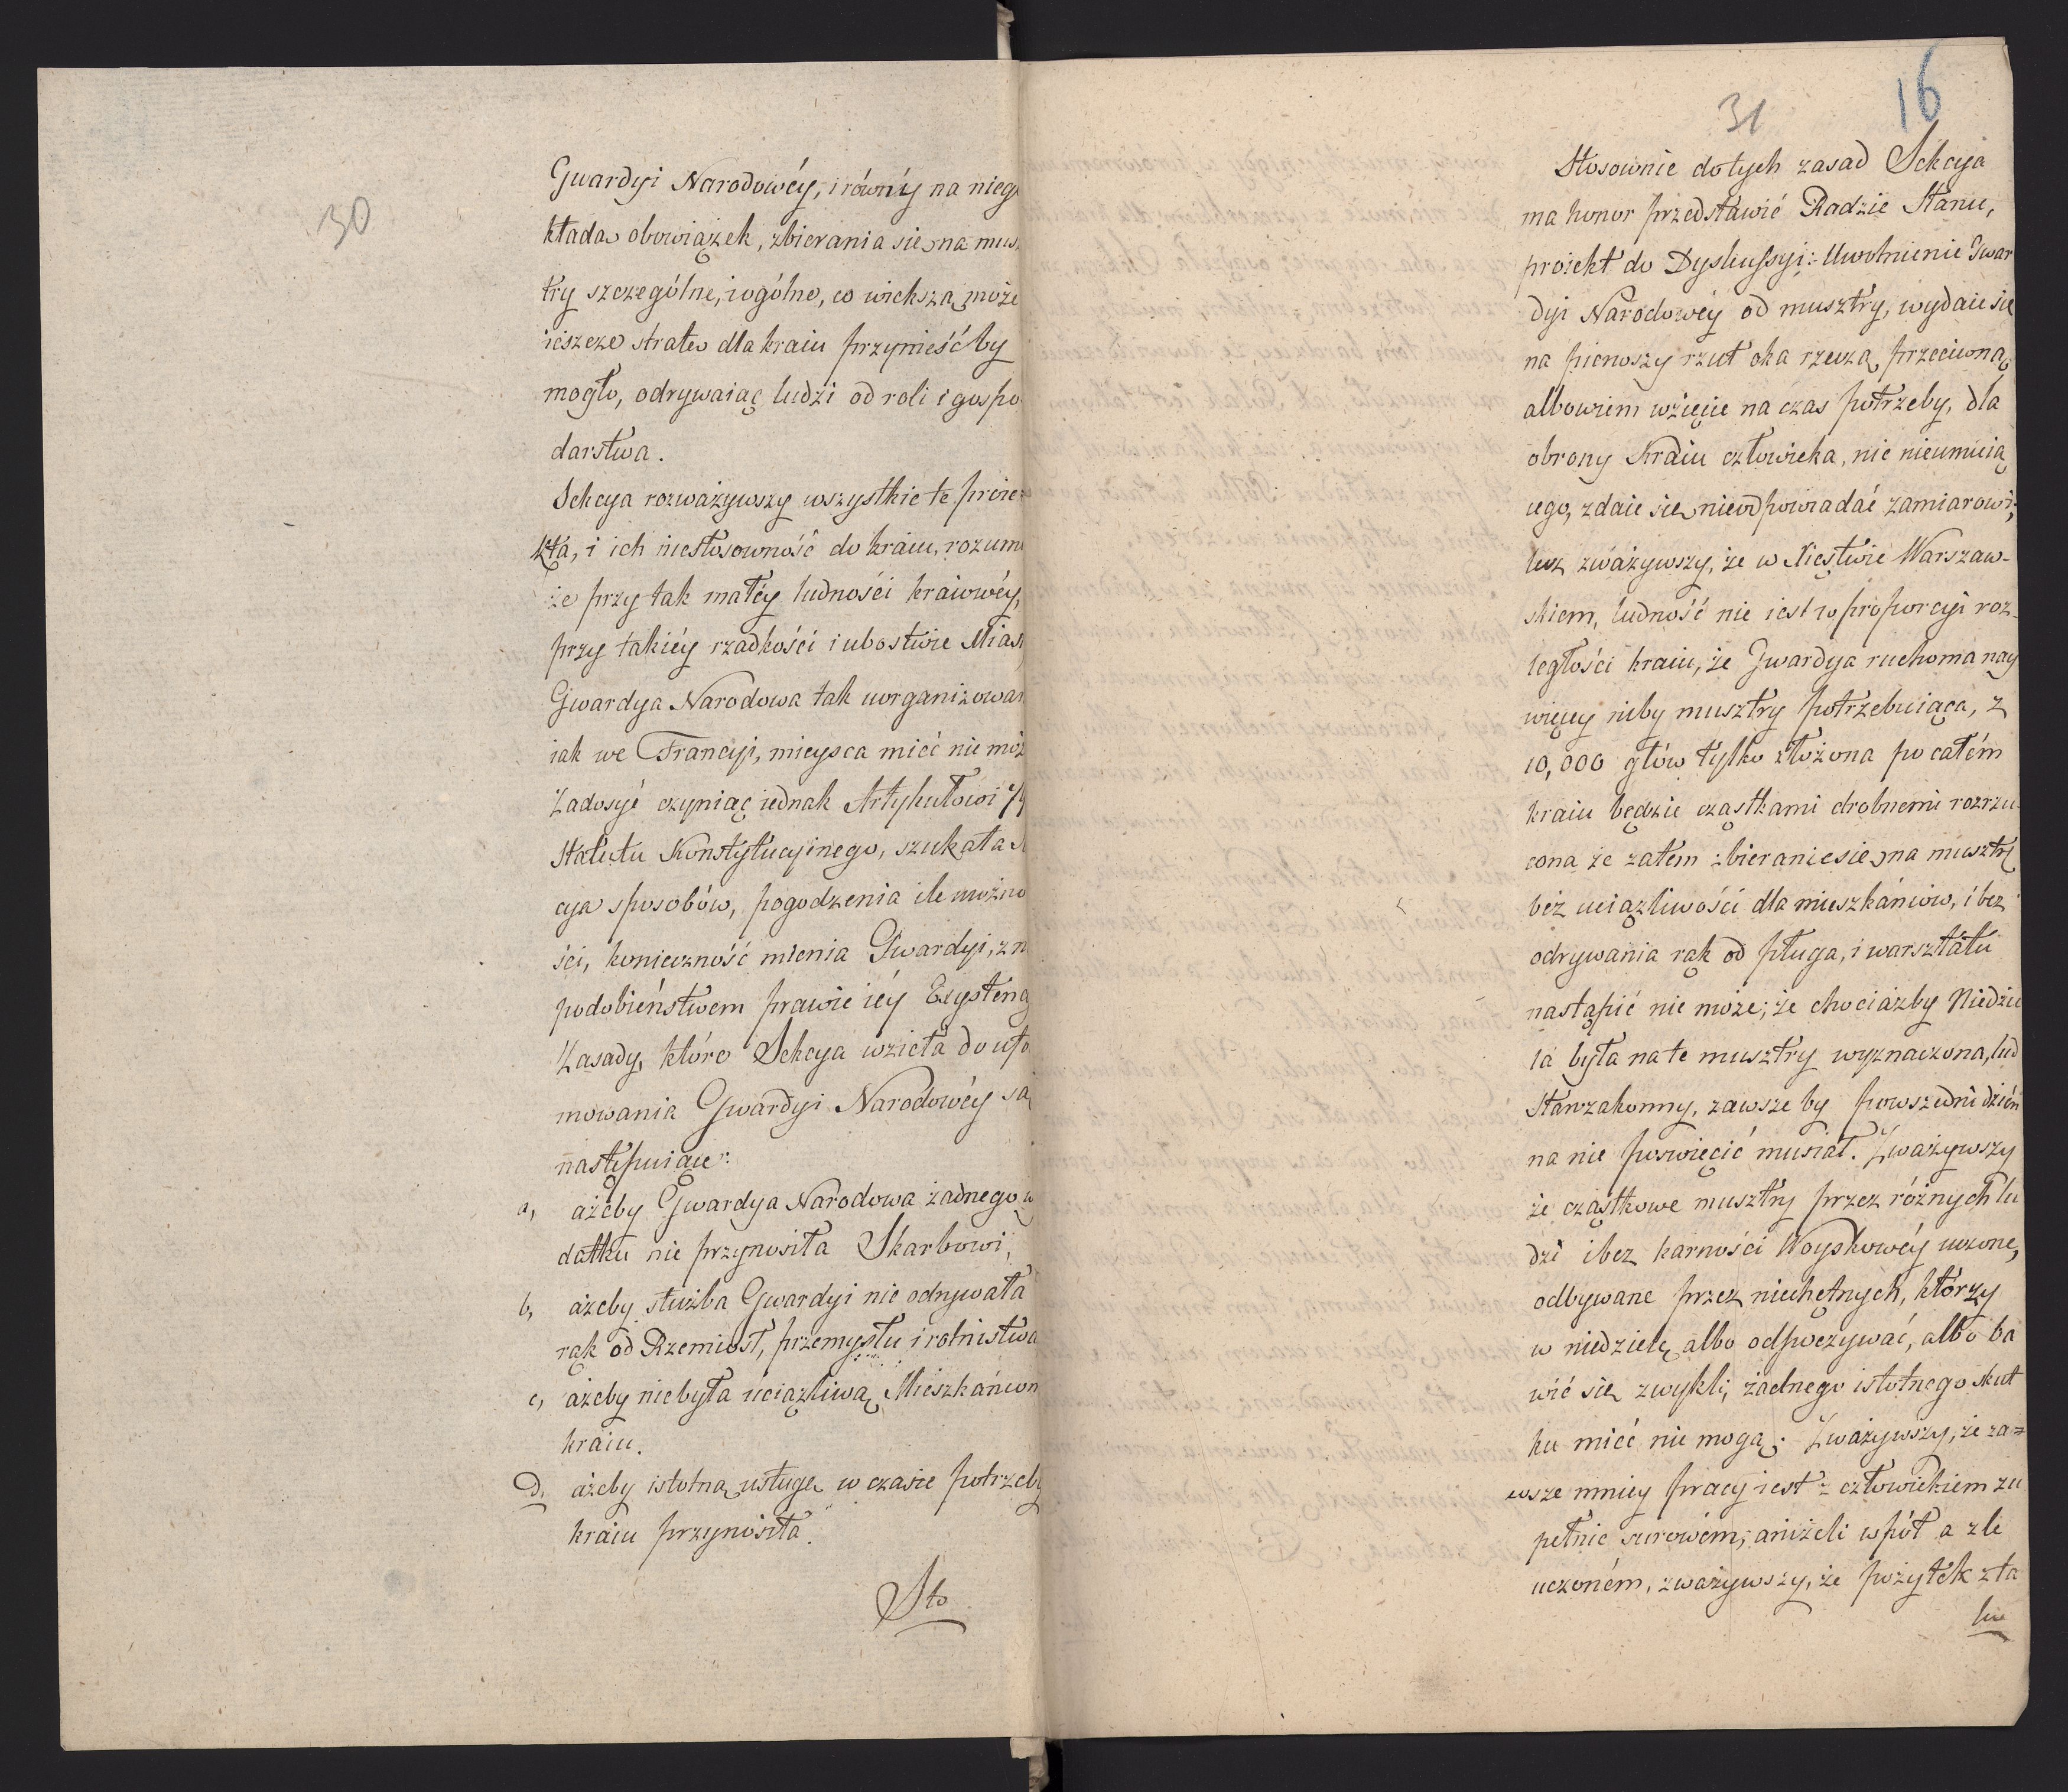 30
Gwardyi Narodowéy, i równy na nieg
kłada obowiązek, zbierania się na mus
try szczególne, i ogólne, co większą może
ieszcze stratę dla kraiu przynieść by
mogło, odrywaiąc ludzi od roli i gospo
darstwa.
Sekcya rozważywszy wszystkie te proie
kta, i ich niestosowność do kraiu, rozumi
że przy tak małéy ludności kraiowéy,
przy takiéy rzadkości i ubostwie Miast
Gwardya Narodowa tak uorganizowan
iak we Francyi, mieysca mieć nie moż
Zadosyć czyniąc iednak Artykułowi
Statutu Konstytucyinego, szukała S
cya sposobów, pogodzenia ile możno
ści, konieczność mienia Gwardyi, z n
podobieństwem prawie iéy Exystency
Zasady, które Sekcya wzięła do ufo
mowania Gwardyi Narodowéy są
następuiące:
a, ażeby Gwardya Narodowa żadnego w
datku nie przynosiła Skarbowi,
b, ażeby służba Gwardyi nie odrywała
rąk od Rzemiosł, przemysłu i rolnistwa
c, ażeby nie była uciążliwą Mieszkańcom
kraiu.
d, ażeby istotną usługę w czasie potrzeby
kraiu przynosiła.
Sto
31
16
Stosownie do tych zasad Sekcya
ma honor przedstawić Radzie Stanu,
proiekt do Dyskussyi: Uwolnienie Gwar
dyi Narodowéy od musztry, wydaie się
na pierwszy rzut oka rzeczą przeciwną
albowiem wzięcie na czas potrzeby, dla
obrony Kraiu człowieka, nic nieumieią
cego, zdaie się nieodpowiadać zamiarowi;
lecz zważywszy, że w Xięstwie Warszaw-
skiem, ludność nie iest w proporcyi roz-
ległości kraiu, że Gwardya ruchoma nay
więcey niby musztry potrzebuiąca, z
10,000 głów tylko złożona po całém
kraiu będzie cząstkami drobnemi rozrzu-
cona że zatem zbieranie się na musztrę
bez uciążliwości dla mieszkańców, i bez
odrywania rąk od pługa, i warsztatu
nastąpić nie może; że chociażby Niedzie
la była na te musztry wyznaczona, lud
Starozakonny, zawsze by powszedni dzień
na nie poswięcić musiał. Zważywszy
że cząstkowe musztry przez różnych lu
dzi i bez karności Woyskowéy uczone,
odbywane przez niechętnych, którzy
w niedzielę albo odpoczywać, albo ba
wić się zwykli, żadnego istotnego skut
ku mieć nie mogą. Zważywszy, że za=
wsze mniey pracy iest z człowiekiem zu
pełnie surowém, aniżeli wpół a źle
uczoném, zważywszy, że pożytek zta